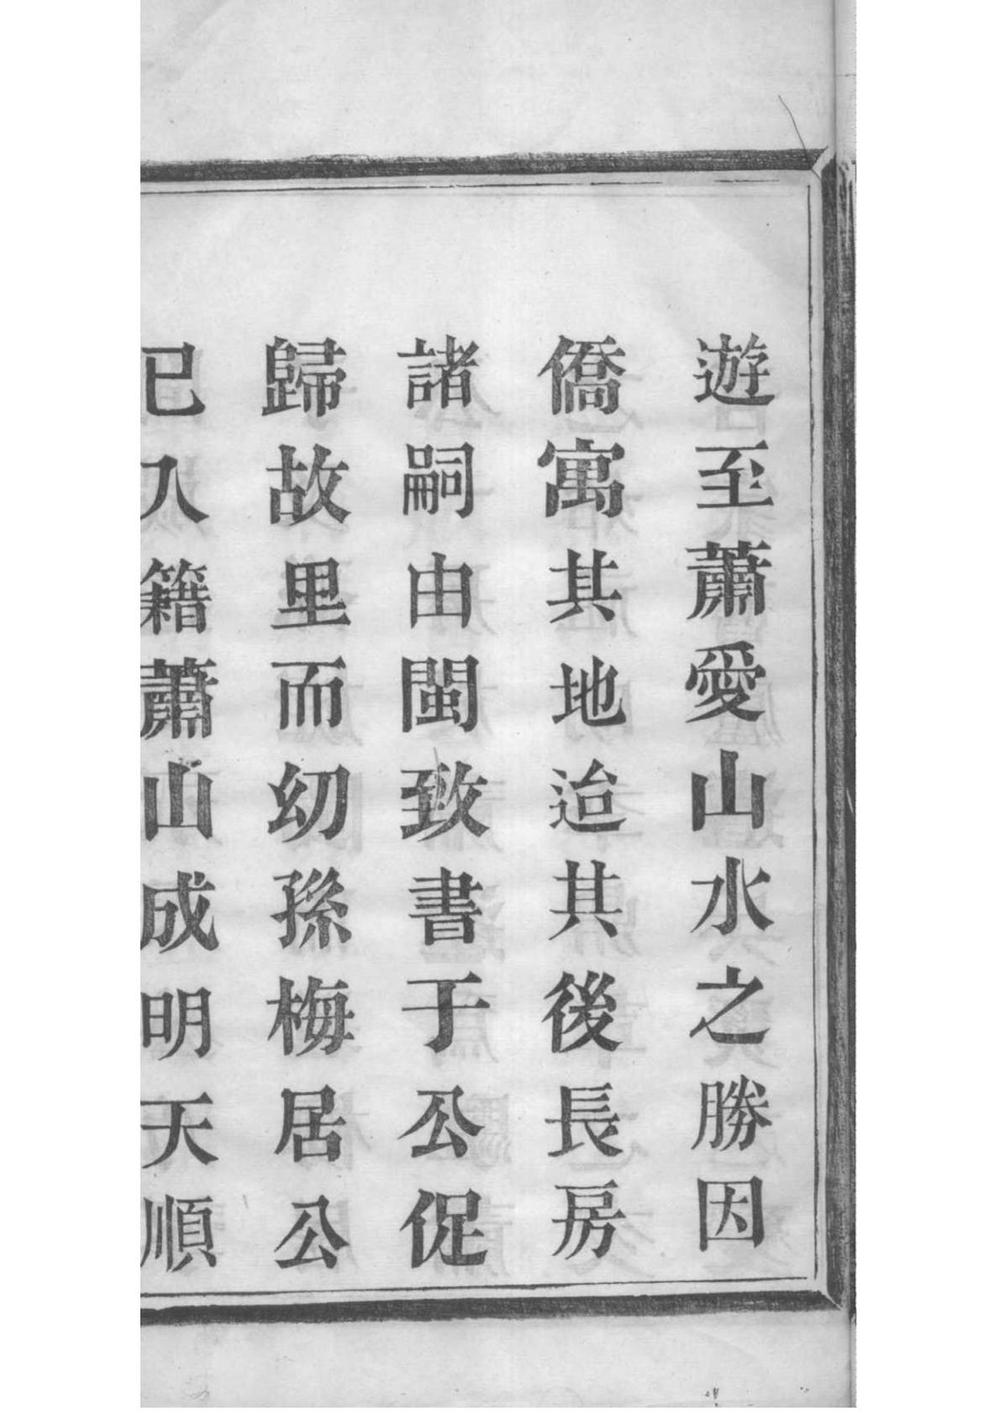 遊至蕭愛山水之勝因
僑寓其地迨其後長房
諸嗣由閩致書于公促
歸故里而幼孫梅居公
已入籍蕭山成明天順